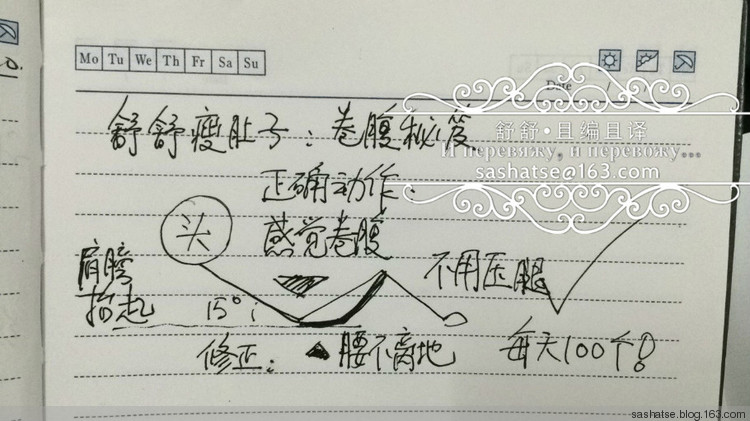 Mo Tu We Th Fr Sa Su
Date / /
舒舒瘦肚子：卷腹秘笈
舒舒·且编且译
И перевяжу, и перевожу...
sashatse@163.com
正确动作：
头
感觉卷腹
肩膀
抬起
15°
不用压腿
修正：
腰不离地
每天100个！
sashatse.blog.163.com